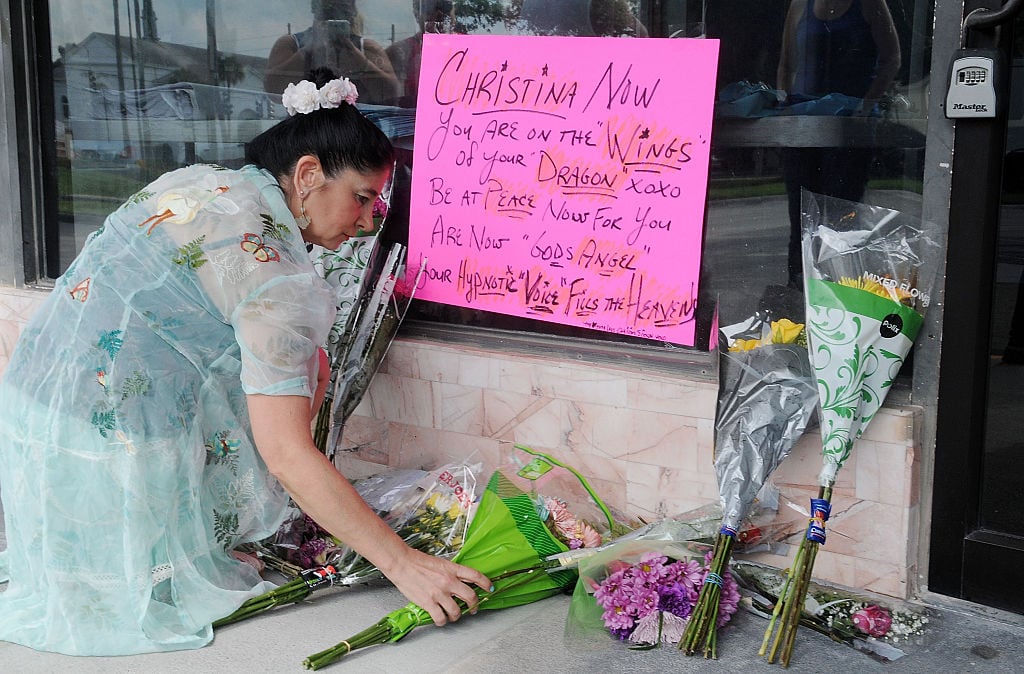 Christina Now
You are on the "Wings"
of your "Dragon" xoxo
Be at Peace Now For you
Are Now "Gods Angel"
Your Hypnotic "Voice" Fills the Heavens
MIXED FLOW
Publix
Master